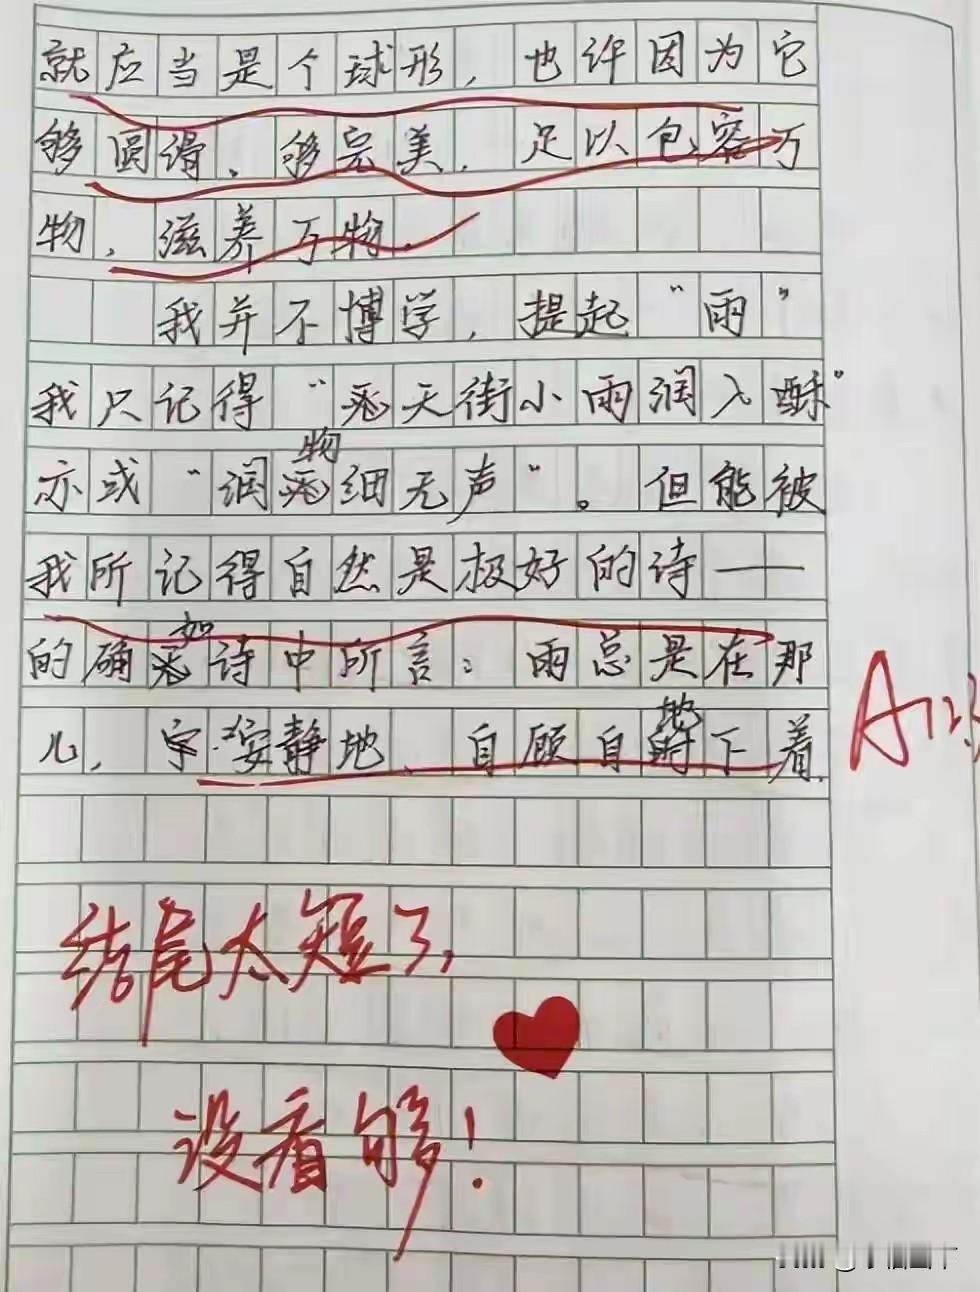 就应当是个球形，也许因为它
够圆滑、够完美，足以包容万
物，滋养万物。
我并不博学，提起“雨”
我只记得“天街小雨润入酥”
亦或“润物细无声”。但能被
我所记得自然是极好的诗——
的确如诗中所言：雨总是在那
儿，安静地、自顾自地下着。
A
结尾太短了，
没看够！